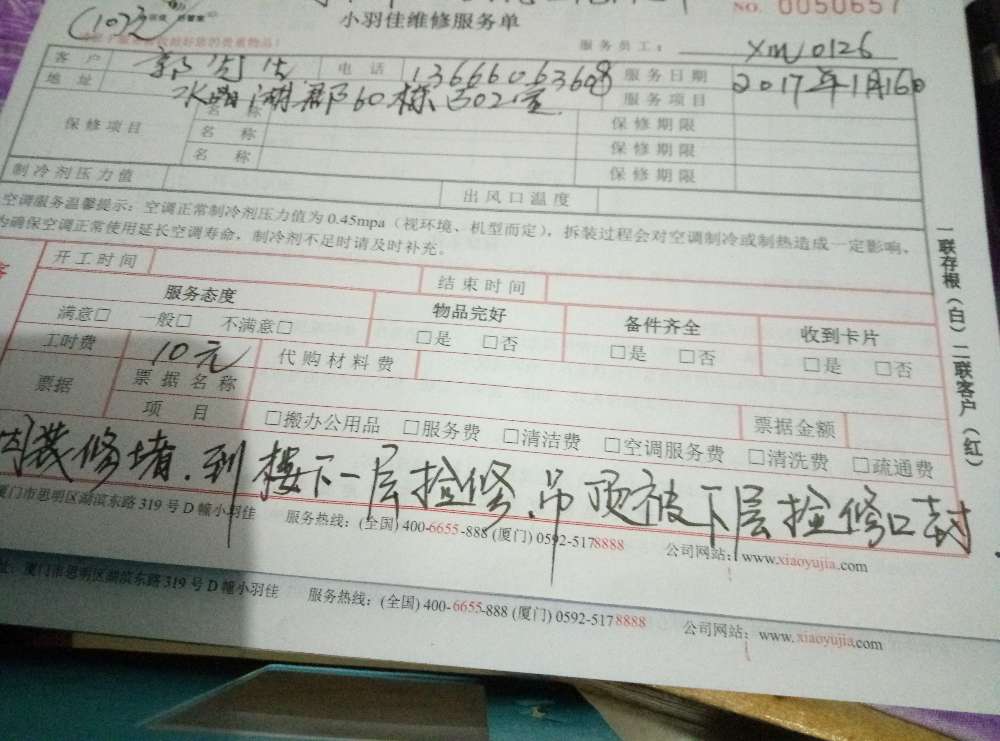 小羽佳维修服务单
NO. 0050657
服务员工: xm0126
客户 电话 13666063608 服务日期 2017年1月16日
地址 水晶湖郡60栋502室 服务项目
保修项目 名称 保修期限
名称 保修期限
名称 保修期限
制冷剂压力值 出风口温度
空调服务温馨提示：空调正常制冷剂压力值为0.45mpa（视环境、机型而定），拆装过程会对空调制冷或制热造成一定影响，
为确保空调正常使用延长空调寿命，制冷剂不足时请及时补充。
开工时间 结束时间
服务态度 物品完好 备件齐全 收到卡片
满意□ 一般□ 不满意□ □是 □否 □是 □否 □是 □否
工时费 10元 代购材料费
票据 票据名称
项目 □搬办公用品 □服务费 □清洁费 □空调服务费 □清洗费 □疏通费 票据金额
因装修堵.到楼下一层检修.吊顶被下层检修口封.
厦门市思明区湖滨东路319号D幢小羽佳 服务热线：(全国) 400-6655-888 (厦门) 0592-5178888 公司网站：www.xiaoyujia.com
址：厦门市思明区湖滨东路319号D幢小羽佳 服务热线：(全国) 400-6655-888 (厦门) 0592-5178888 公司网站：www.xiaoyujia.com
一联存根（白）二联客户（红）